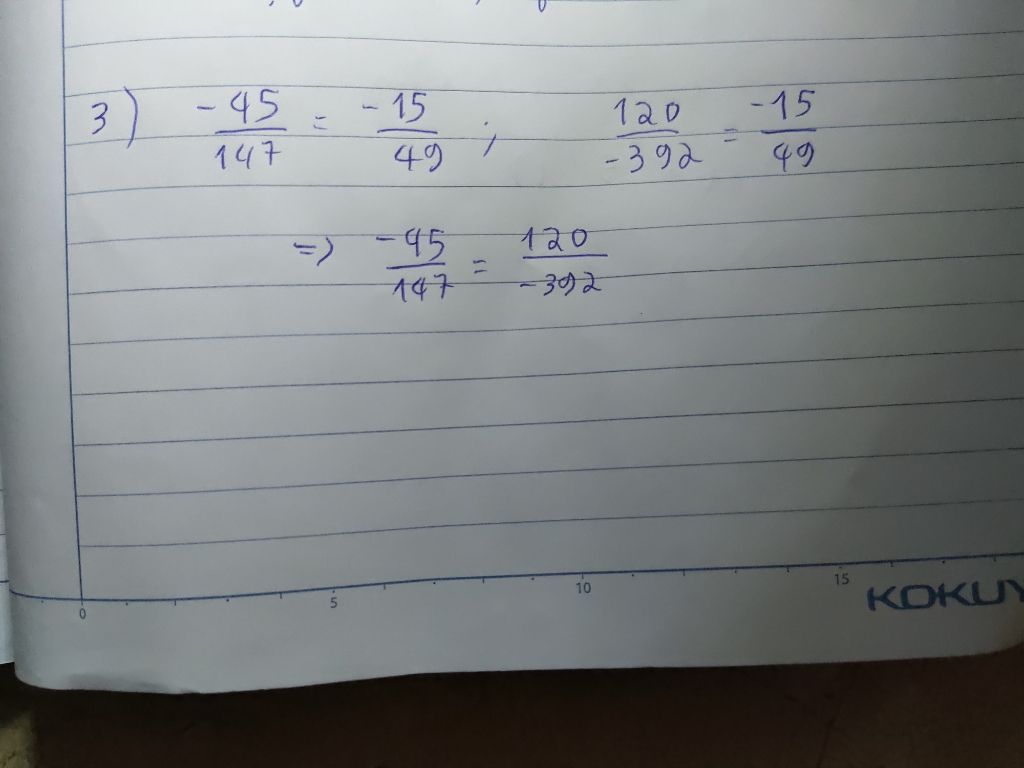 3) -45/147 = -15/49 ; 120/-392 = -15/49
=> -45/147 = 120/-392
0 5 10 15 KOKUY